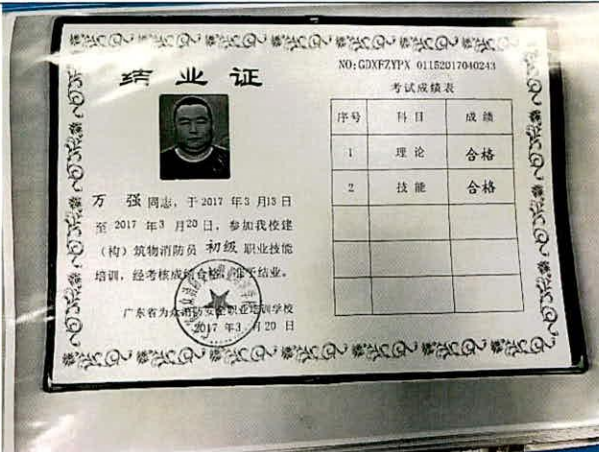 结业证
万强同志，于2017年3月13日
至2017年3月20日，参加我校建
（构）筑物消防员 初级 职业技能
培训，经考核成绩合格，准予结业。
广东省为众消防安全职业培训学校
2017年3月20日
NO:GDXFZYPX 01152017040243
考试成绩表
序号 科目 成绩
1 理论 合格
2 技能 合格